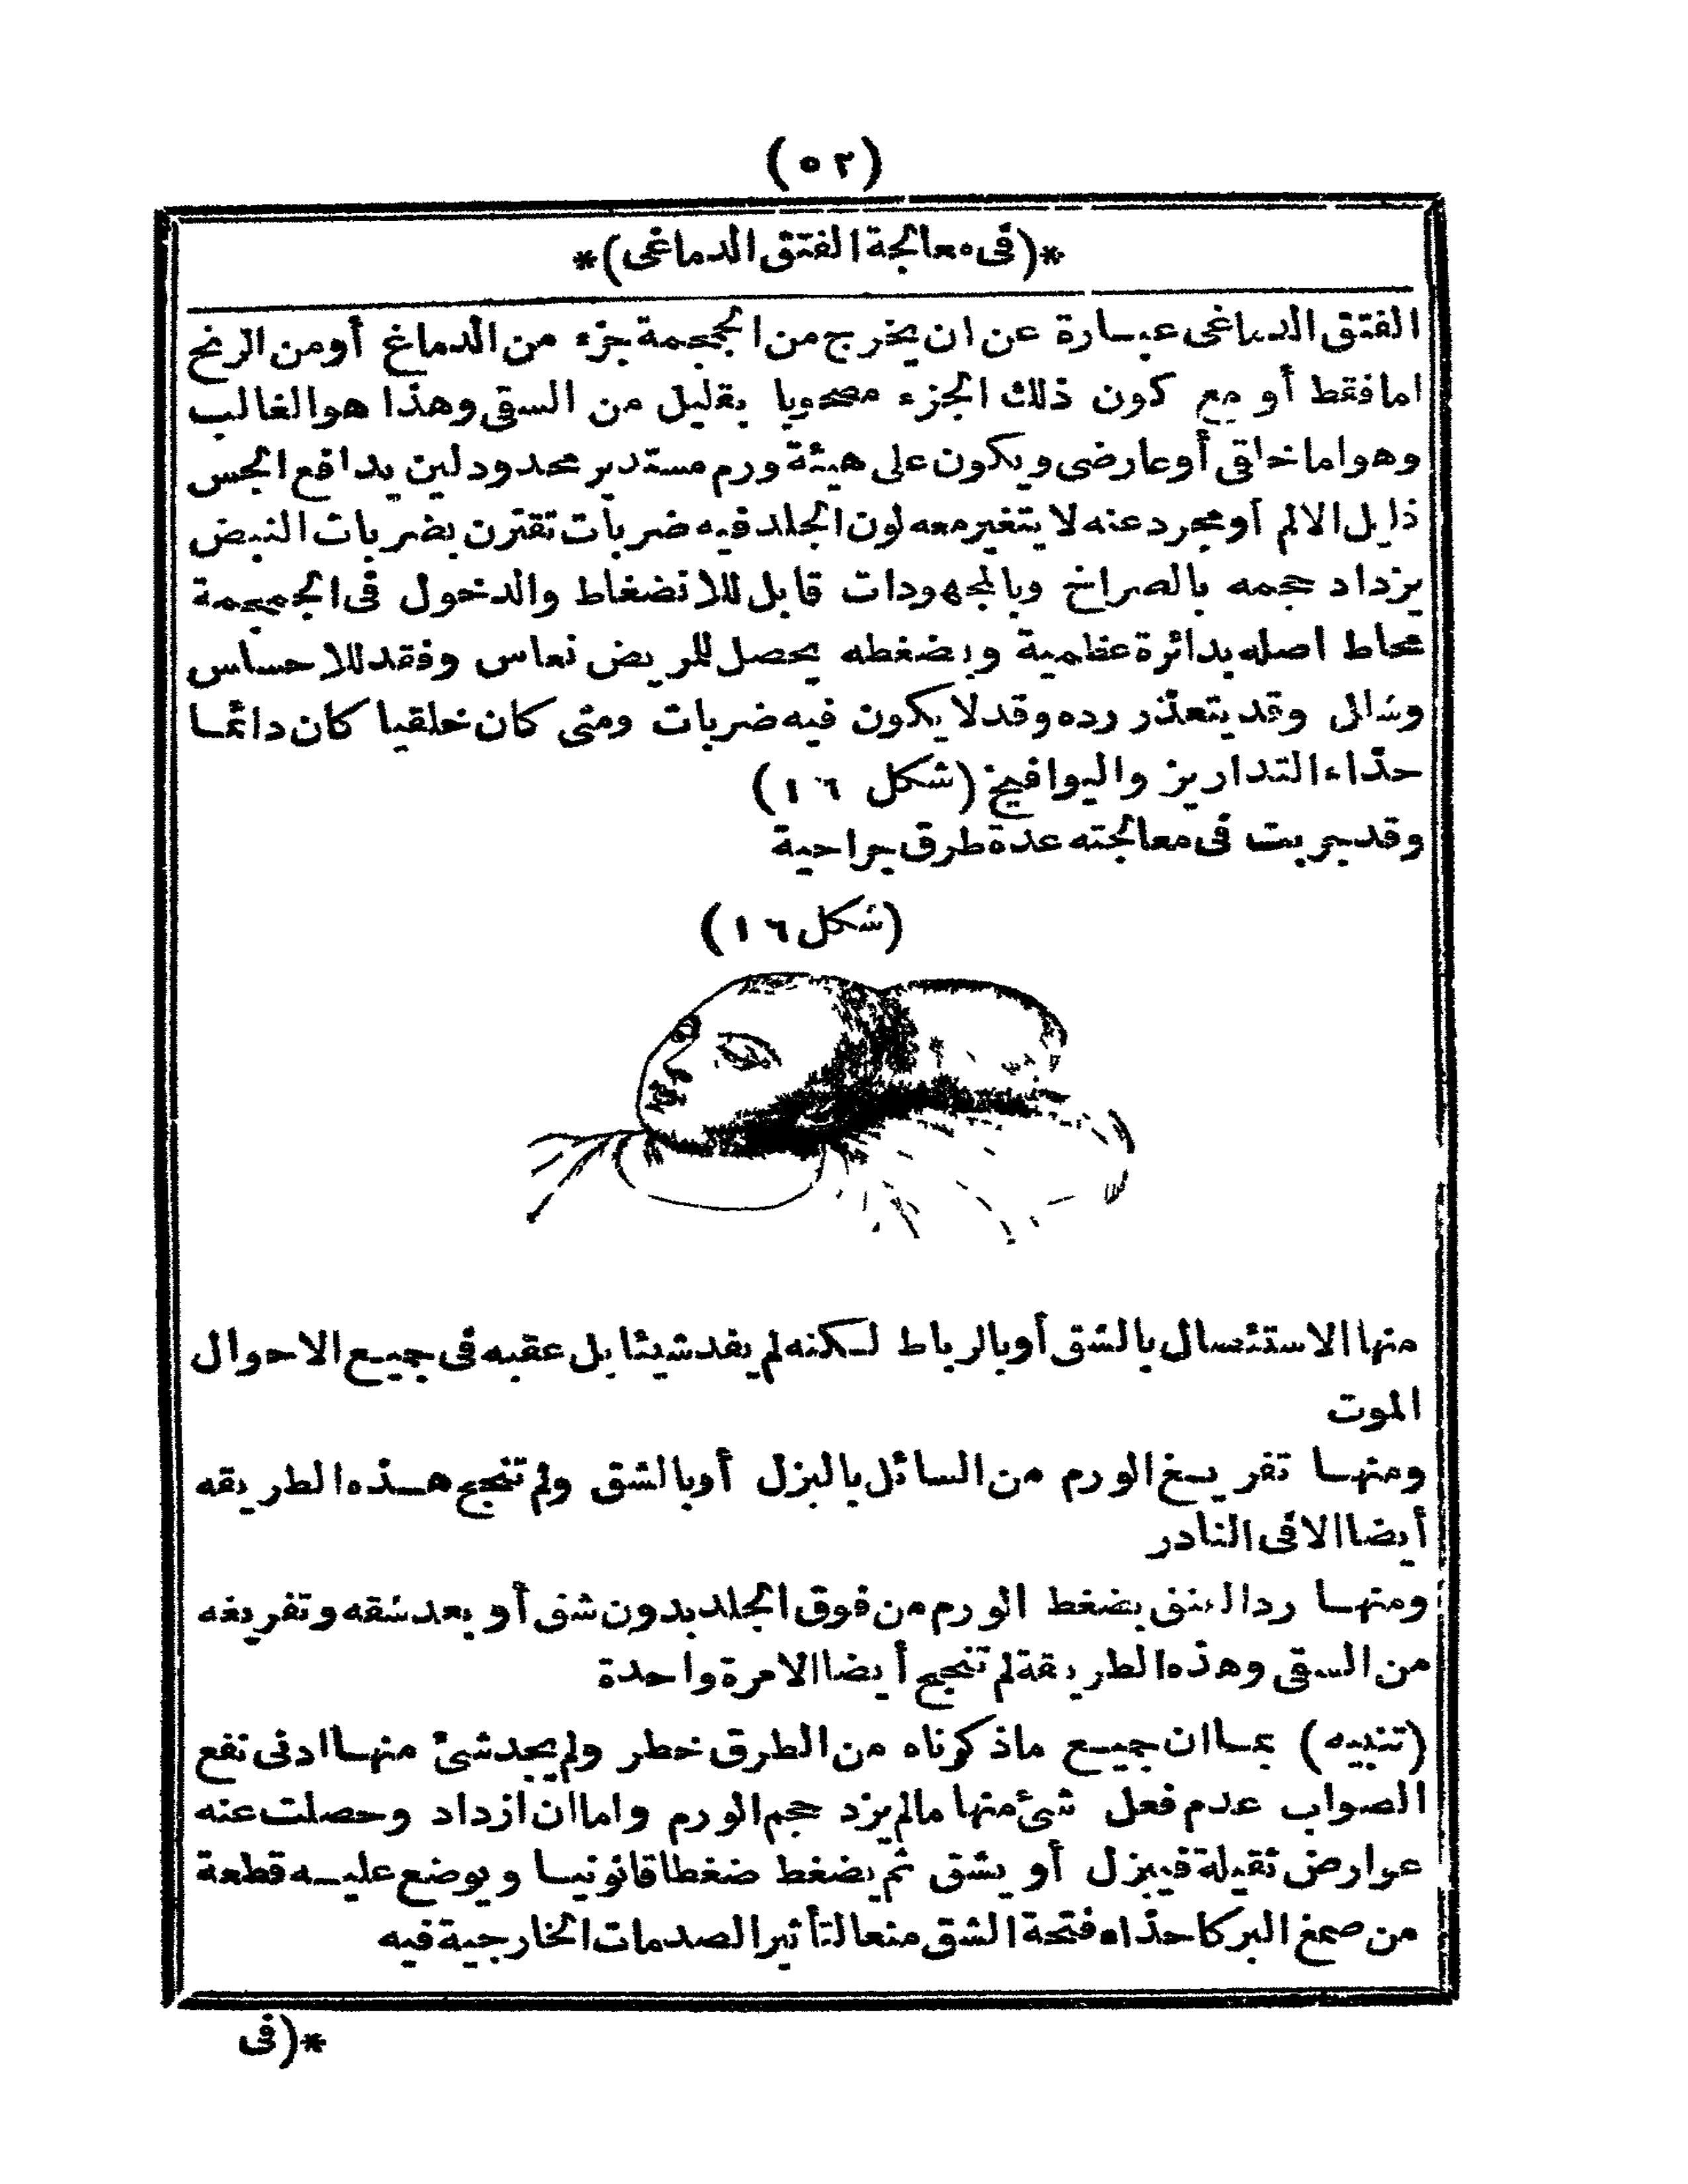 (٥٢)
*(فى معالجة الفتق الدماغى)*
الفتق الدماغى عبارة عن ان يخرج من الجمجمة جزء من الدماغ أو من الرنح
اما فقط أو مع كون ذلك الجزء مصحوبا بقليل من السقى وهذا هو الغالب
وهو اما خلقى أو عارضى ويكون على هيئة ورم مستدير محدود لين يدافع الجس
قليل الالم أو مجرد عنه لا يتغير معه لون الجلد فيه ضربات تقترن بضربات النبض
يزداد حجمه بالصراخ وبالمجهودات قابل للانضغاط والدخول فى الجمجمة
محاط اصله بدائرة عظمية وبضغطه يحصل للمريض نعاس وفقد للاحساس
وشلل وقد يتعذر رده وقد لا يكون فيه ضربات ومتى كان خلقيا كان دائما
حذاء التداريز واليوافيخ (شكل ١٦)
وقد جربت فى معالجته عدة طرق جراحية
(شكل ١٦)
منها الاستئصال بالشق أو بالرباط لكنه لم يفد شيئا بل عقبه فى جميع الاحوال
الموت
ومنها تفريغ الورم من السائل بالبزل أو بالشق ولم تنجح هذه الطريقه
أيضا الا فى النادر
ومنها رد الفتق بضغط الورم من فوق الجلد بدون شق أو بعد شقه وتفريغه
من السقى وهذه الطريقة لم تنجح أيضا الا مرة واحدة
(تنبيه) بما ان جميع ما ذكرناه من الطرق خطر ولم يجد شئ منها ادنى نفع
الصواب عدم فعل شئ منها ما لم يزد حجم الورم واما ان ازداد وحصلت عنه
عوارض ثقيلة فيبزل أو يشق ثم يضغط ضغطا قانونيا ويوضع عليه قطعة
من صمغ البركا حذاء فتحة الشق منعا لتأثير الصدمات الخارجية فيه
*(فى